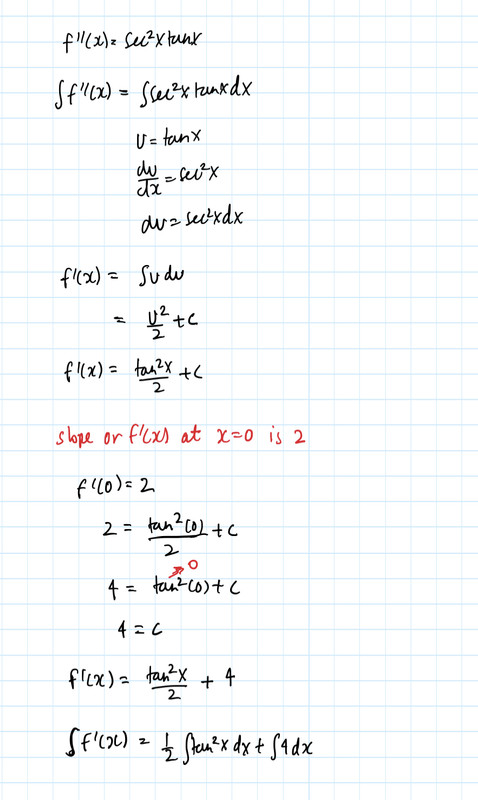 f''(x) = sec²x tanx
∫f''(x) = ∫sec²x tanx dx
U = tanx
du/dx = sec²x
du = sec²x dx
f'(x) = ∫u du
= U²/2 + C
f'(x) = tan²x/2 + C
slope or f'(x) at x=0 is 2
f'(0) = 2
2 = tan²(0)/2 + C
0
4 = tan²(0) + C
4 = C
f'(x) = tan²x/2 + 4
∫f'(x) = 1/2 ∫tan²x dx + ∫4 dx